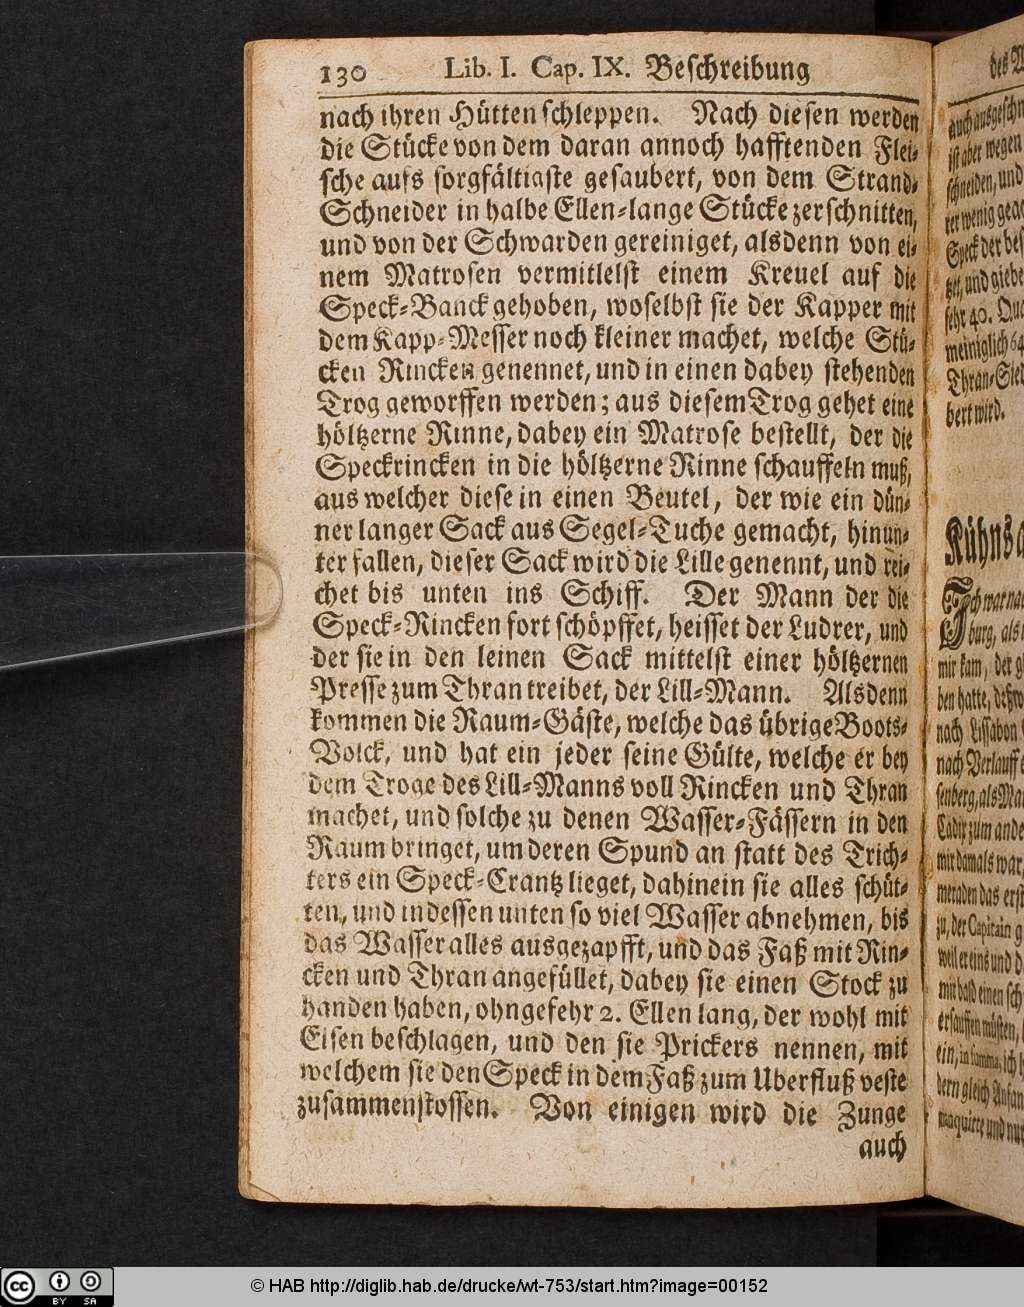 130 Lib. I. Cap. IX. Beschreibung
nach ihren Hütten schleppen. Nach diesen werden
die Stücke von dem daran annoch hafftenden Flei-
sche aufs sorgfältigste gesaubert, von dem Strand-
Schneider in halbe Ellen-lange Stücke zerschnitten,
und von der Schwarden gereiniget, alsdenn von ei-
nem Matrosen vermitlelst einem Kreuel auf die
Speck-Banck gehoben, woselbst sie der Kapper mit
dem Kapp-Messer noch kleiner machet, welche Stü-
cken Rincken genennet, und in einen dabey stehenden
Trog geworffen werden; aus diesem Trog gehet eine
höltzerne Rinne, dabey ein Matrose bestellt, der die
Speckrincken in die höltzerne Rinne schauffeln muß,
aus welcher diese in einen Beutel, der wie ein dün-
ner langer Sack aus Segel-Tuche gemacht, hinun-
ter fallen, dieser Sack wird die Lille genennt, und rei-
chet bis unten ins Schiff. Der Mann der die
Speck-Rincken fort schöpffet, heisset der Ludrer, und
der sie in den leinen Sack mittelst einer höltzernen
Presse zum Thran treibet, der Lill-Mann. Alsdenn
kommen die Raum-Gäste, welche das übrige Boots-
Volck, und hat ein jeder seine Gülte, welche er bey
dem Troge des Lill-Manns voll Rincken und Thran
machet, und solche zu denen Wasser-Fässern in den
Raum bringet, um deren Spund an statt des Trich-
ters ein Speck-Crantz lieget, dahinein sie alles schüt-
ten, und indessen unten so viel Wasser abnehmen, bis
das Wasser alles ausgezapfft, und das Faß mit Rin-
cken und Thran angefüllet, dabey sie einen Stock zu
handen haben, ohngefehr 2. Ellen lang, der wohl mit
Eisen beschlagen, und den sie Prickers nennen, mit
welchem sie den Speck in dem Faß zum Uberfluß veste
zusammenstossen. Von einigen wird die Zunge
auch
des
auch
ist aber wegen
schneiden, und
rer wenig
Speck der
und giebe
sehr 40.
meiniglich 64
Thran-Sied
bert wird.
Kühns
Ich war
burg, als
mir kam, der
ben hatte,
nach Lissabon
nach Verlauff
senberg, als
Cadix zum ande
mir damals war,
meraden das erst
zu, der Capitain
weil er eins und
mir bald einen
ersauffen müsten,
ein, in Summa, ich
dern gleich
und nur
cc BY SA
© HAB http://diglib.hab.de/drucke/wt-753/start.htm?image=00152